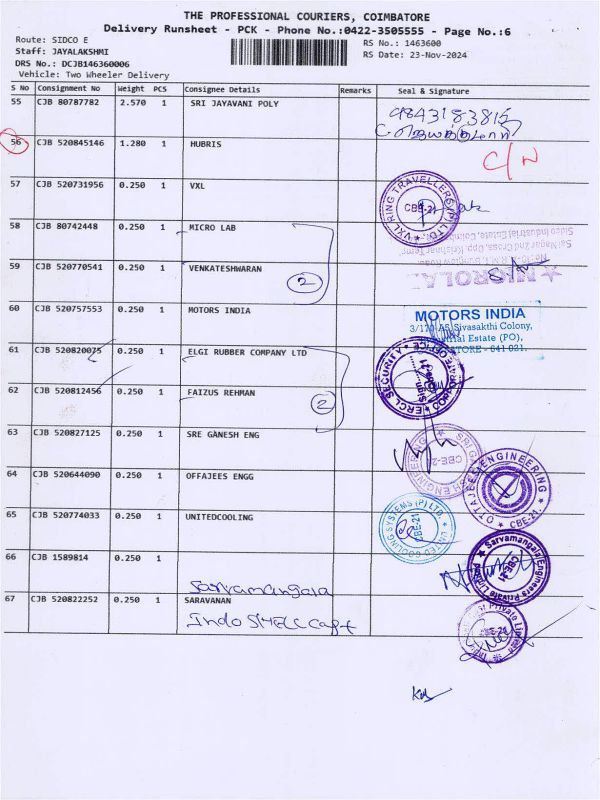 THE PROFESSIONAL COURIERS, COIMBATORE
Delivery Runsheet - PCK - Phone No.:0422-3505555 - Page No.:6
Route: SIDCO E
RS No.: 1463600
Staff: JAYALAKSHMI
RS Date: 23-Nov-2024
DRS No.: DCJB146360006
Vehicle: Two Wheeler Delivery
S No Consignment No Weight PCS Consignee Details Remarks Seal & Signature
55 CJB 80787782 2.570 1 SRI JAYAVANI POLY
9843183815
56 CJB 520845146 1.280 1 HUBRIS C/N
57 CJB 520731956 0.250 1 VXL
VXL RING TRAVELLERS (P) LTD CBE-21
58 CJB 80742448 0.250 1 MICRO LAB
59 CJB 520770541 0.250 1 VENKATESHWARAN
2
60 CJB 520757553 0.250 1 MOTORS INDIA
MOTORS INDIA
3/120-A5 Sivasakthi Colony,
Industrial Estate (PO),
- 641 021.
61 CJB 520820075 0.250 1 ELGI RUBBER COMPANY LTD
ERCL SECURITY
62 CJB 520812456 0.250 1 FAIZUS REHMAN
2
63 CJB 520827125 0.250 1 SRE GANESH ENG
64 CJB 520644090 0.250 1 OFFAJEES ENGG
ENGINEERING CBE-21
65 CJB 520774033 0.250 1 UNITEDCOOLING
UNITED COOLING SYSTEMS (P) LTD. CBE-21
66 CJB 1589814 0.250 1
Sarvamangala
Sarvamangala Engineers Private Limited CBE-21
67 CJB 520822252 0.250 1 SARAVANAN
Indo SHELL Cast